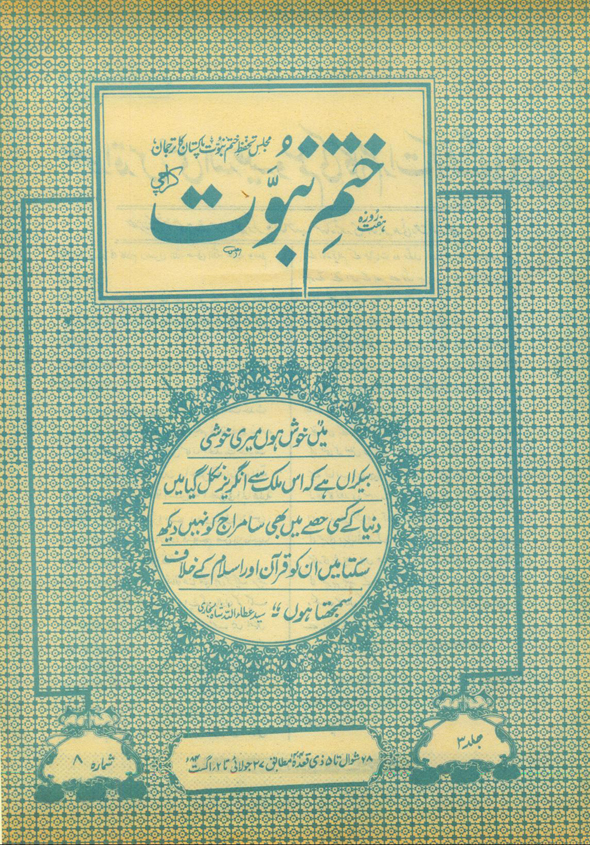 مجلس تحفظ ختم نبوت پاکستان کا ترجمان
ہفت روزہ
ختم نبوّت
کراچی
میں خوش ہوں میری خوشی
بیکراں ہے کہ اس ملک سے انگریز نکل گیا میں
دنیا کے کسی حصے میں بھی سامراج کو نہیں دیکھ
سکتا میں ان کو قرآن اور اسلام کے خلاف
سمجھتا ہوں ؛؛ سید عطاء اللہ شاہ بخاری
جلد ۳
۲۸ شوال تا ۵ ذی قعدہ مطابق ۲۷ جولائی تا ۲ اگست
شمارہ ۸